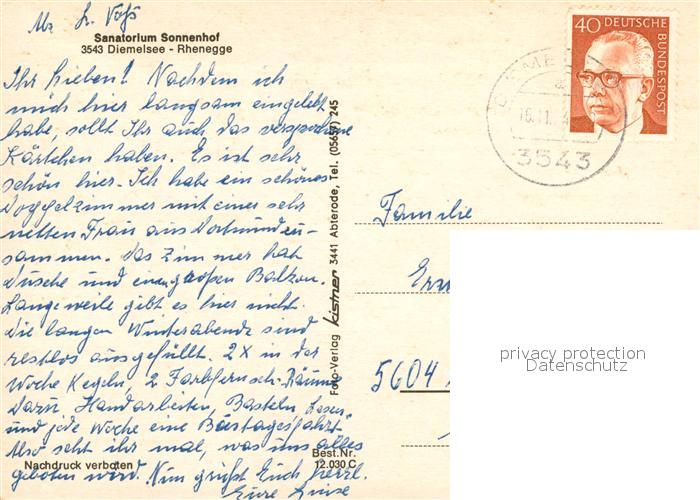 Sanatorium Sonnenhof
3543 Diemelsee - Rhenegge
Ihr Lieben! Nachdem ich
mich hier langsam eingelebt
habe, sollt Ihr auch das versprochene
Kärtchen haben. Es ist sehr
schön hier. Ich habe ein schönes
Doppelzimmer mit einer sehr
netten Frau aus Dortmund zu-
sammen. Das Zimmer hat
Dusche und einen großen Balkon.
Langeweile gibt es hier nicht.
Die langen Winterabende sind
restlos ausgefüllt. 2x in der
Woche Kegeln, 2 Farbfernseh-Räume
Dazu, Handarbeiten, Basteln, Lesen
und jede Woche eine Bustagesfahrt
Also seht ihr mal, was uns alles
geboten wird. Nun grüßt Euch herzl.
Eure Luise
Nachdruck verboten
Best.Nr.
12.030 C
Foto-Verlag kistner 3441 Abterode, Tel. (05657) 245
40 DEUTSCHE BUNDESPOST
3543
Familie
5604
privacy protection
Datenschutz